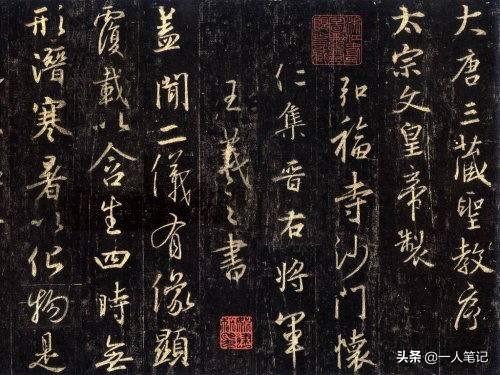 大唐三藏聖教序
太宗文皇帝製
弘福寺沙門懷
仁集晉右將軍
王羲之書
蓋聞二儀有像顯
覆載以含生四時無
形潛寒暑以化物是
头条 @一人笔记